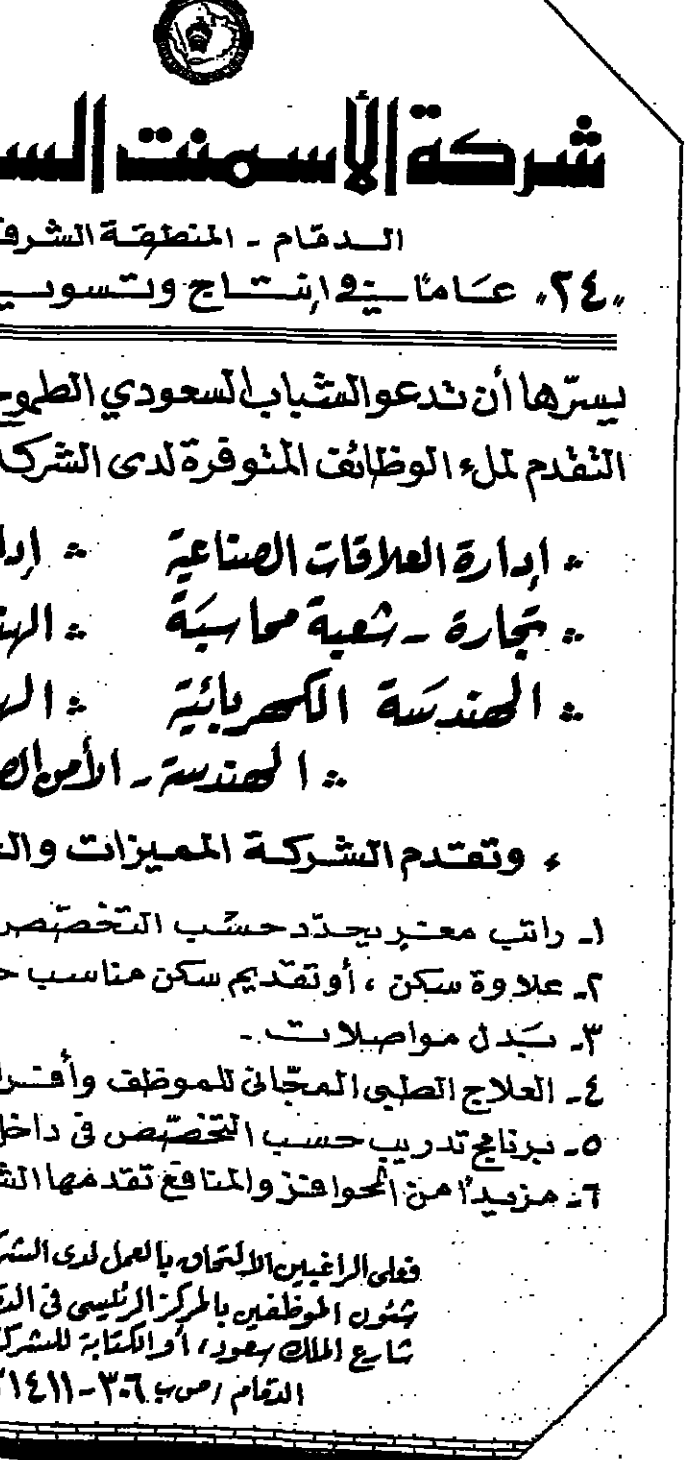 شركة الأسمنت الس
الدمّام - المنطقة الشرق
"٢٤" عَامًا في إنتاج وتسوي
يسرّها أن تدعو الشباب السعودي الطموح
التقدم لملء الوظائف المتوفرة لدى الشرك
* إدارة العلاقات الصناعية * إدا
* تجارة - شعبة محاسبة * الهن
* الهندسة الكهربائية * اله
* الهندسة - الأمن الص
* وتقدم الشركة المميزات وال
١- راتب معتبر يحدّد حسب التخصّص
٢- علاوة سكن ، أو تقديم سكن مناسب ح
٣- بَدل مواصلات -
٤- العلاج الطبي المجّاني للموظف وأفرا
٥- برنامج تدريب حسب التخصّص في داخل
٦- مزيداً من الحوافز والمنافع تقدمها الش
فعلى الراغبين الالتحاق بالعمل لدى الشر
شئون الموظفين بالمركز الرئيسي في الد
شارع الملك سعود، أو الكتابة للشرك
الدمّام / ص ب ٣٠٦ - ١٤١١